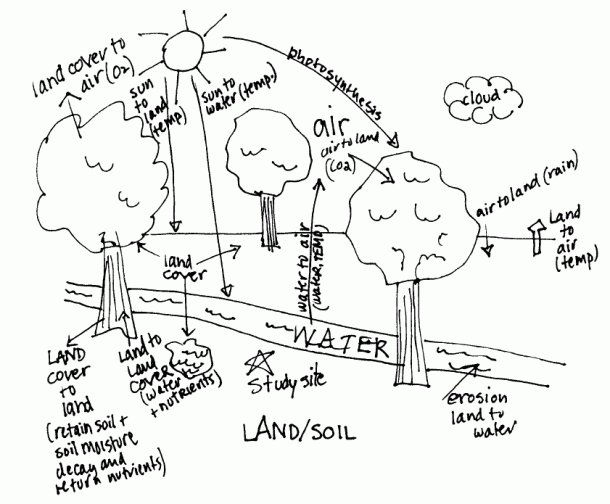 land cover to
air (O2)
sun
to
land
(temp)
sun to
water (temp.)
photosynthesis
cloud
air
air to land
(CO2)
air to land (rain)
Land
to
air
(temp)
land
cover
water to air
(water, TEMP)
WATER
LAND
cover
to
land
(retain soil +
soil moisture
decay and
return nutrients)
Land to
Land
cover
(water
+ nutrients)
Study site
LAND/SOIL
erosion
land to
water